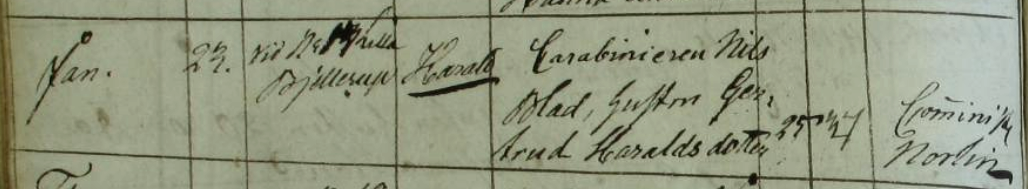 Jan. 23. vid No 1 Lilla
Bjellerup
Harald
Carabinieren Nils
Blad, hustrun Ger-
trud Haraldsdotter
25
Cominist.
Norlin